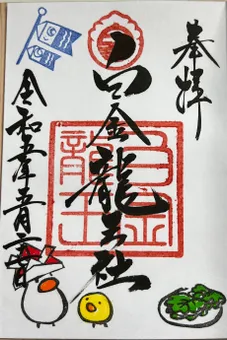 奉拝
白金龍王社
白金
龍王
令和五年五月